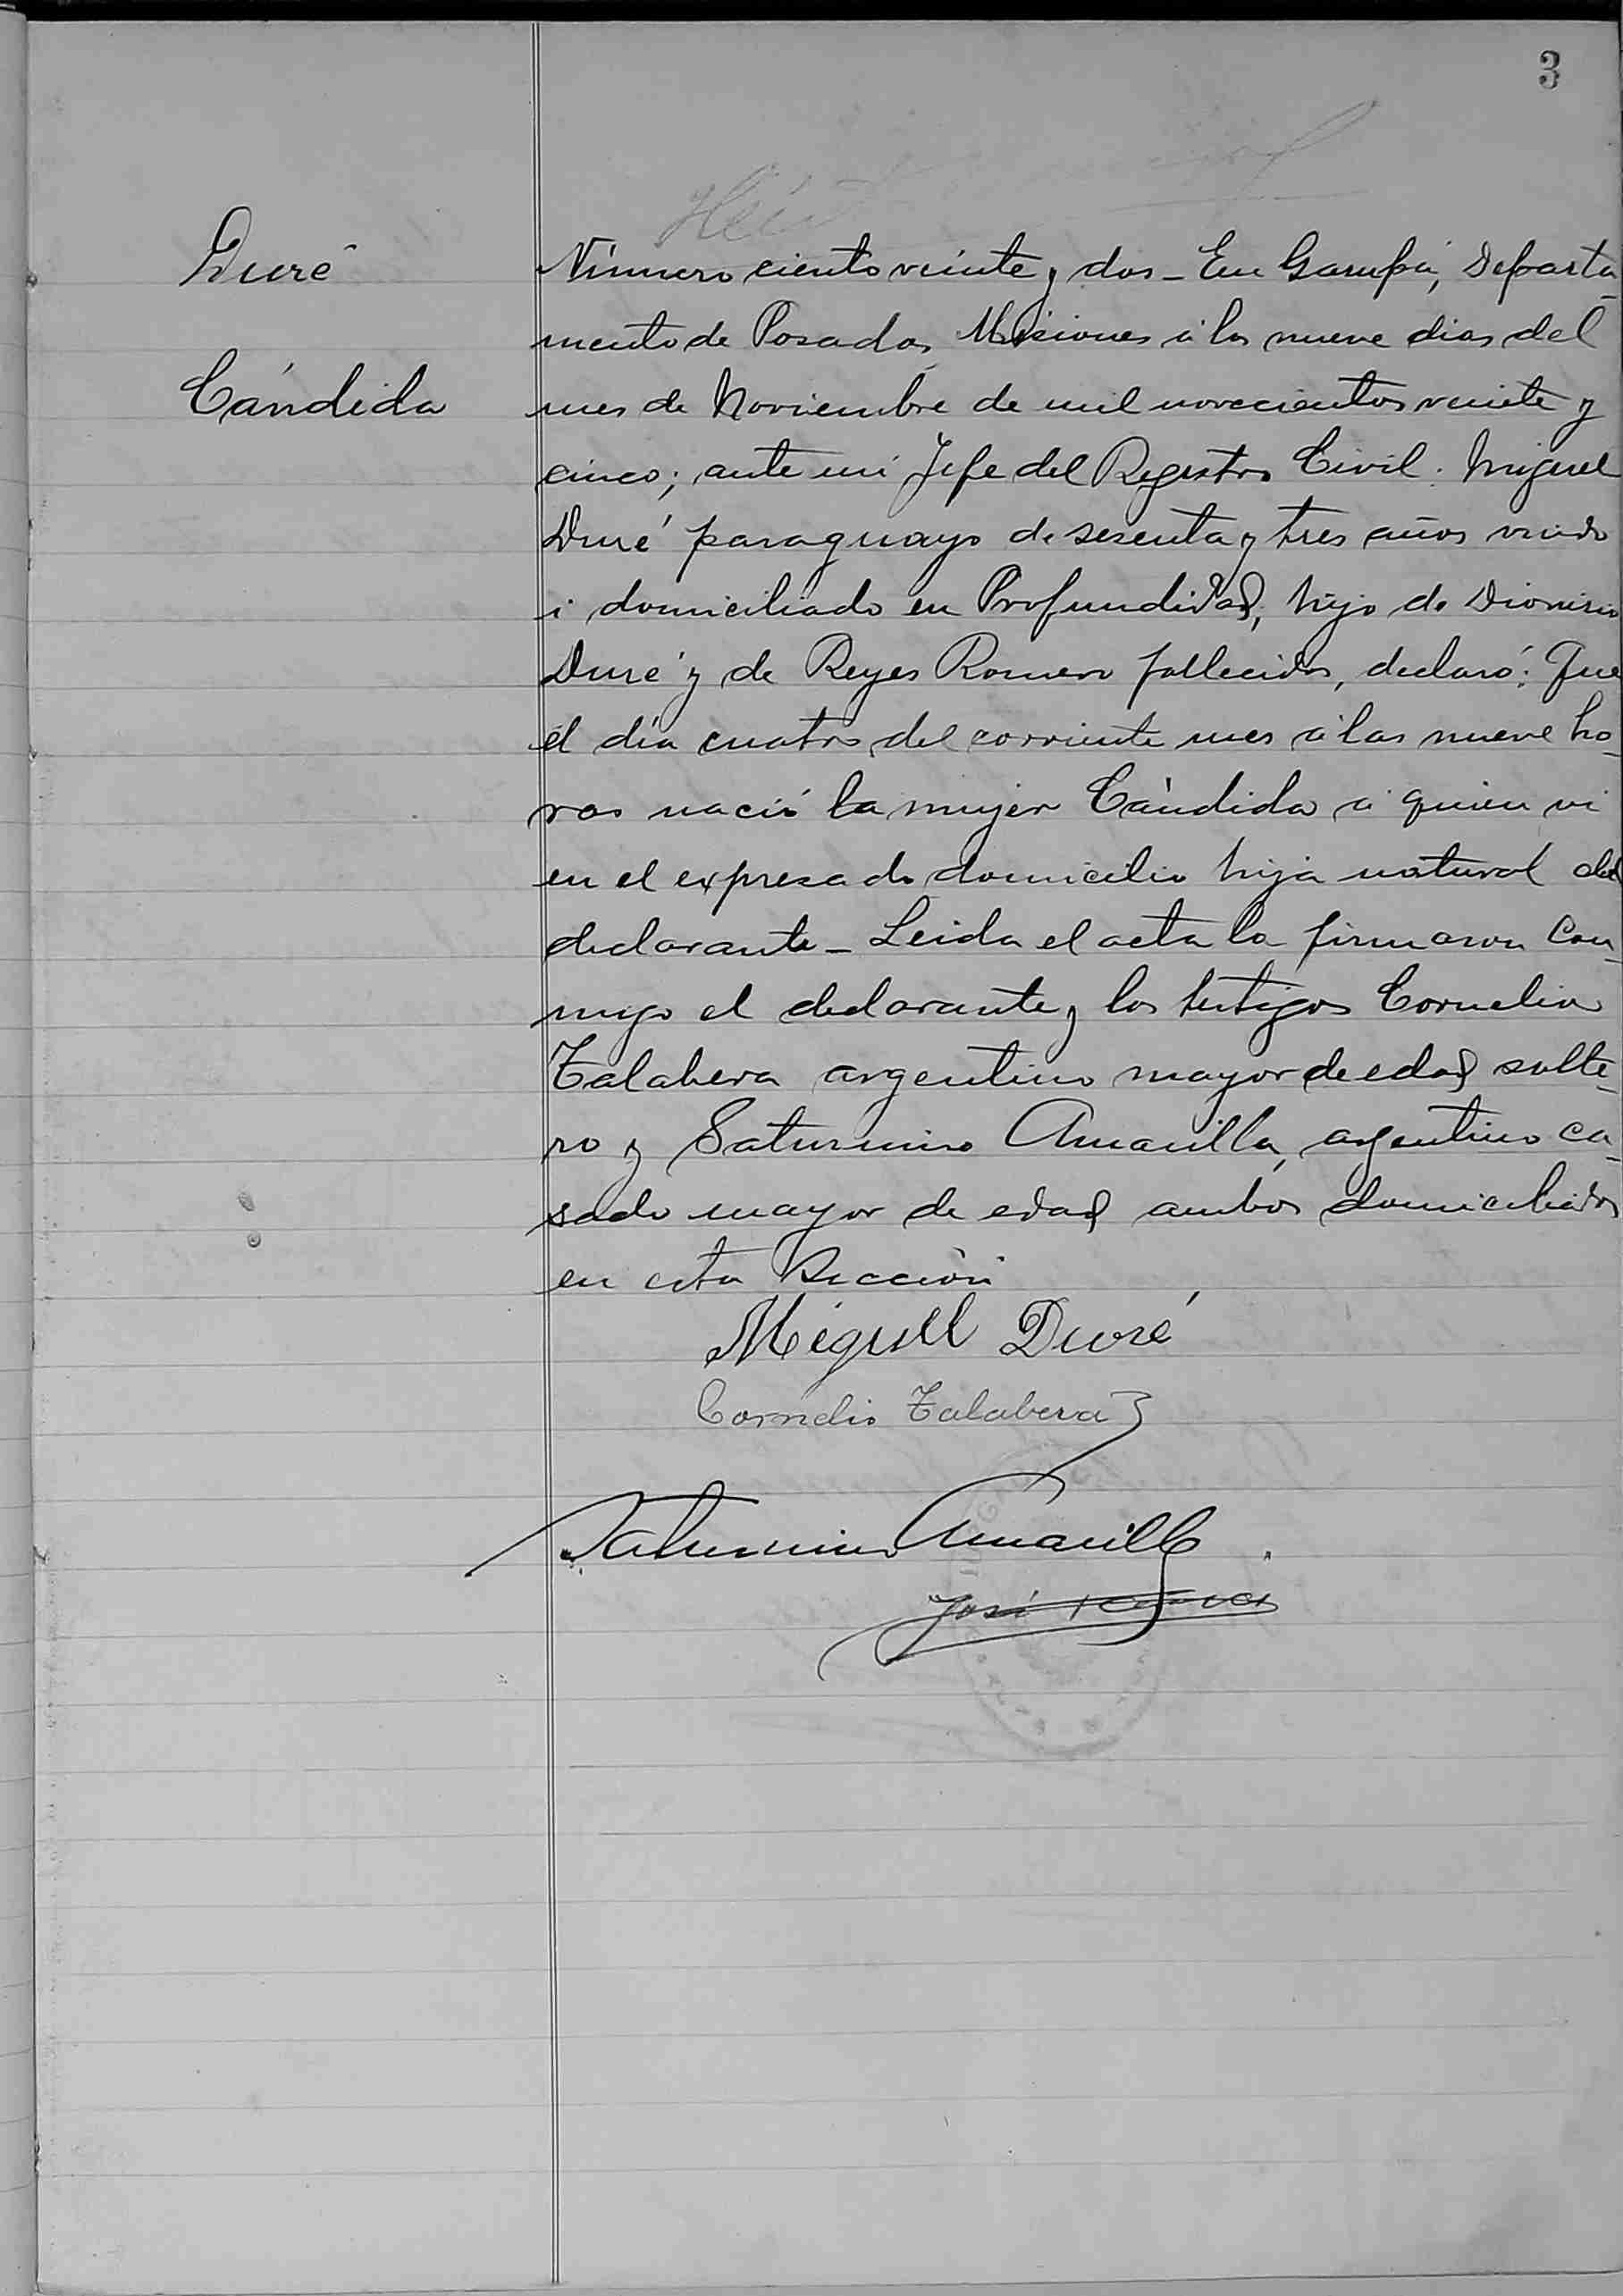 3
Duré
Cándida
Número ciento veinte y dos - En Garupá, Departa-
mento de Posadas, Misiones á los nueve dias del
mes de Noviembre de mil novecientos veinte y
cinco; ante mi Jefe del Registro Civil. Miguel
Duré paraguayo de sesenta y tres años viudo
i domiciliado en Profundidad, hijo de Dionisio
Duré y de Reyes Romero fallecidos, declaró: Que
el día cuatro del corriente mes á las nueve ho-
ras nació la mujer Cándida á quien vi
en el expresado domicilio hija natural del
declarante - Leida el acta la firmaron con-
migo el declarante y los testigos Cornelio
Talabera argentino mayor de edad solte-
ro y Saturnino Amarilla, argentino ca-
sado mayor de edad ambos domiciliados
en esta Sección
Miguel Duré
Cornelio Talabera
Saturnino Amarilla
José